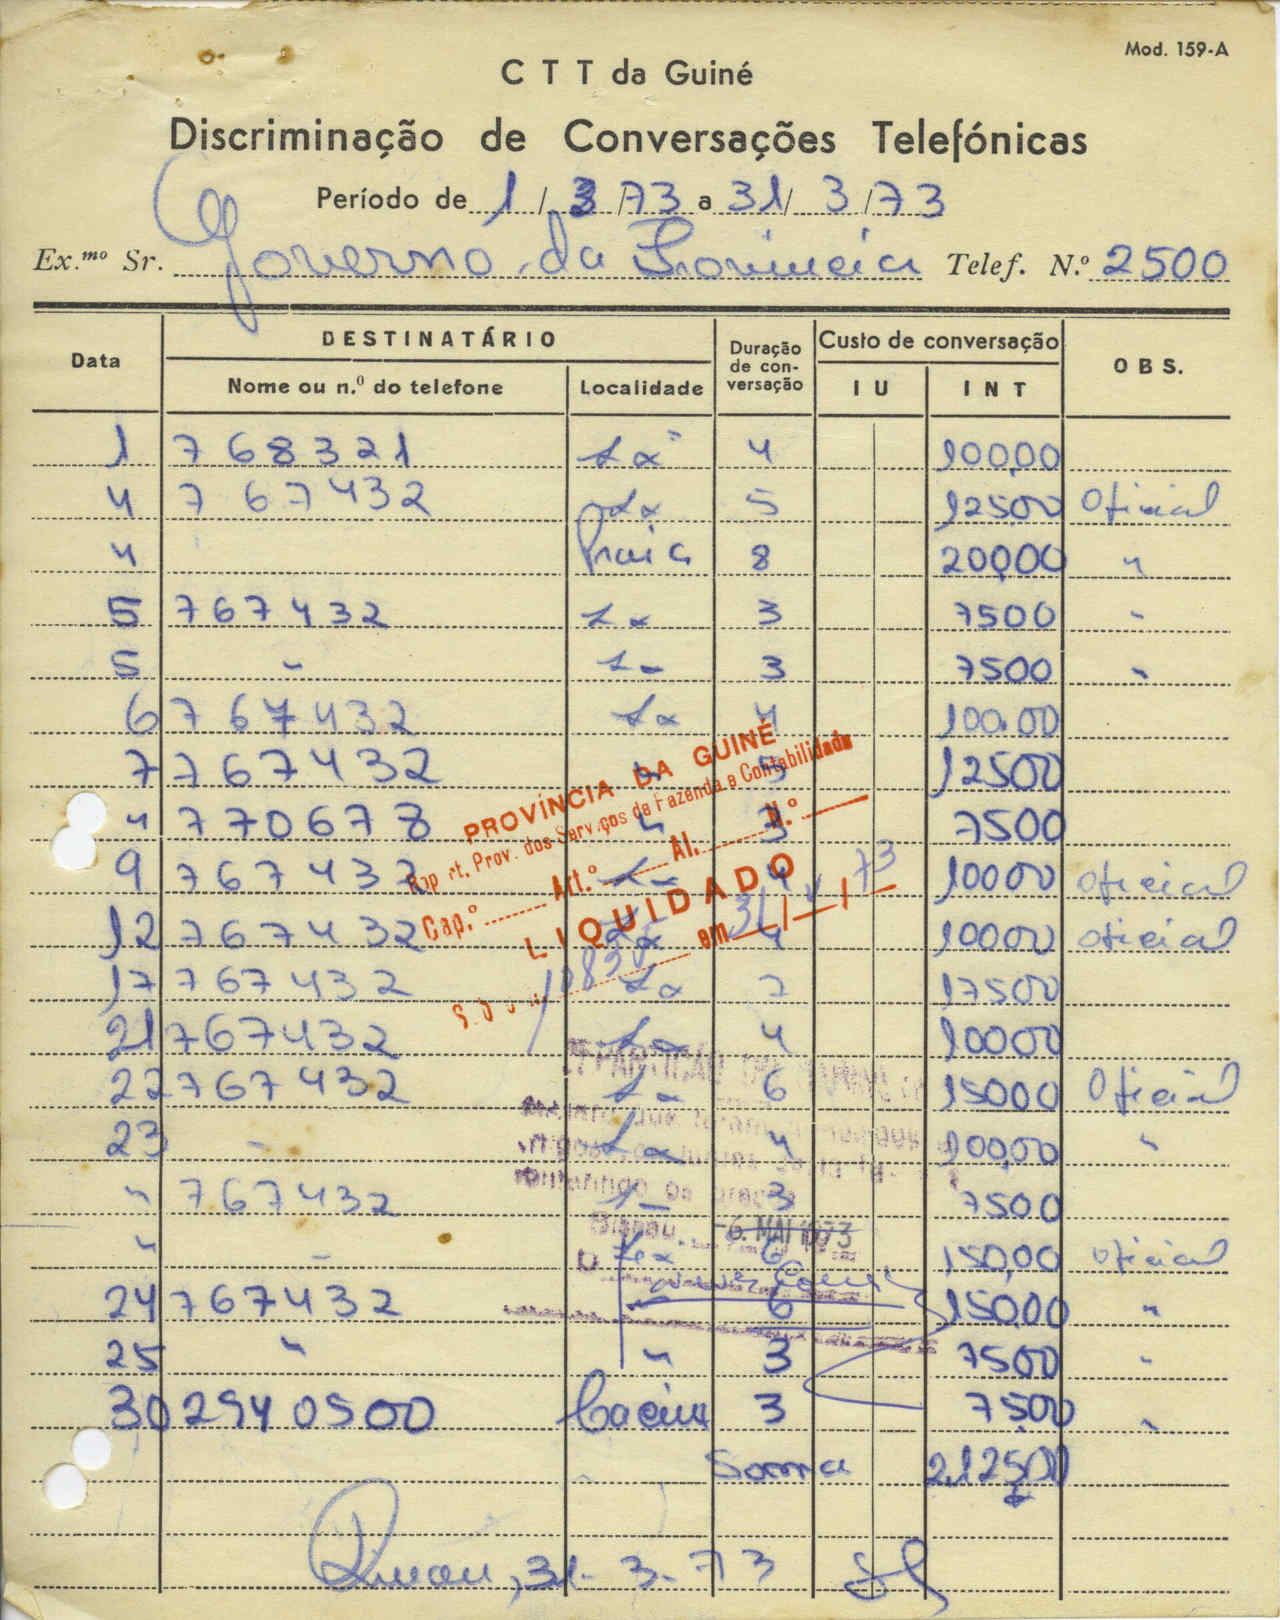 Mod. 159-A
C T T da Guiné
Discriminação de Conversações Telefónicas
Período de 1 / 3 / 73 a 31 / 3 / 73
Ex.mo Sr. Governo da Provincia Telef. N.º 2500
Data DESTINATÁRIO Duração de conversação Custo de conversação OBS.
Nome ou n.º do telefone Localidade I U I N T
1 768321 Lx 4 100,00
4 767432 Lx 5 12500 Oficial
4 Praia 8 200,00 "
5 767432 Lx 3 7500 "
5 " Lx 3 7500 "
6 767432 Lx 4 100,00
7 767432 " 5 12500
" 770678 " 3 7500
9 767432 Lx 4 10000 Oficial
12 767432 Lx 4 10000 Oficial
17 767432 Lx 7 17500
21 767432 Lx 4 10000
22 767432 Lx 6 15000 Oficial
23 " Lx 4 100,00 "
" 767432 Lx 3 7500
" " Lx 6 150,00 Oficial
24 767432 6 15000 "
25 " " 3 7500 "
30 2940500 3 7500 "
Soma 2.12500
31-3-73
PROVÍNCIA DA GUINÉ
Rep rt. Prov. dos Serviços de Fazenda e Contabilidade
Cap.º Art.º Al. N.º
LIQUIDADO
em 31 / V / 73
Bissau, -6. MAI 1973
O